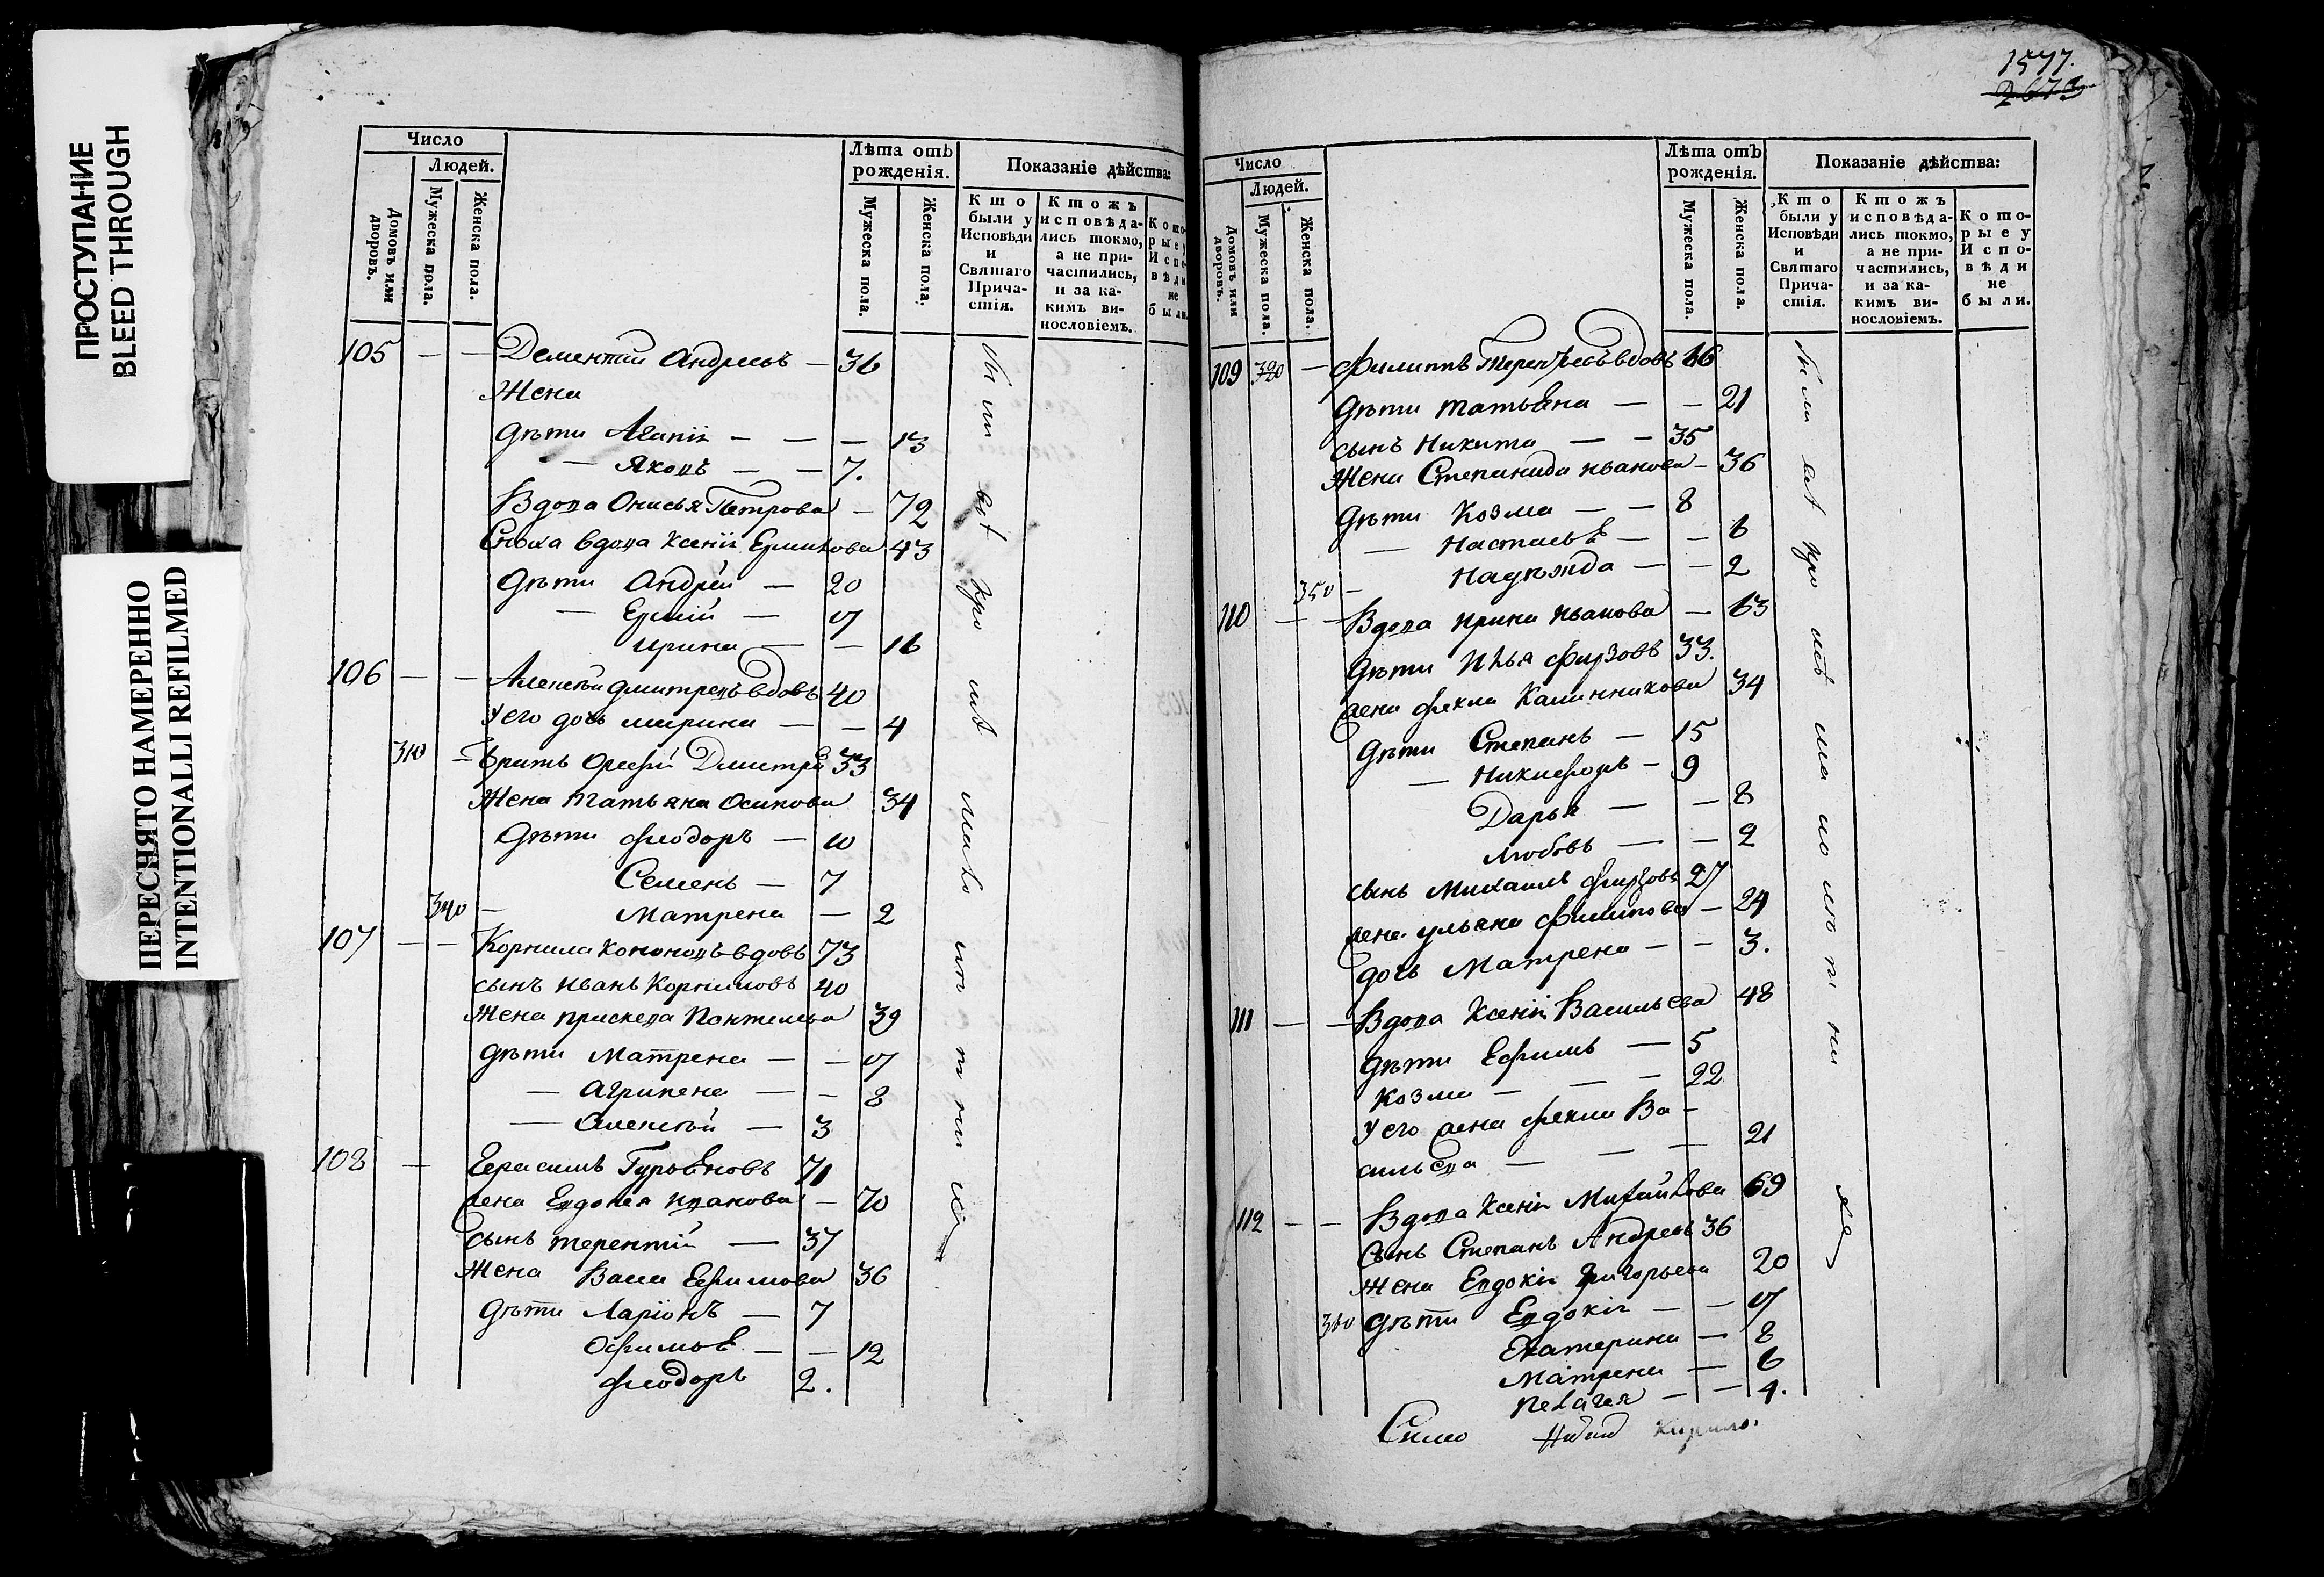 ПРОСТУПАНИЕ
BLEED THROUGH
ПЕРЕСНЯТО НАМЕРЕННО
INTENTIONALLI REFILMED
Число
Людей.
Домовъ или дворовъ.
Мужеска пола.
Женска пола.
Лѣта отъ рожденія.
Мужеска пола.
Женска пола.
Показаніе дѣйства:
Кто были у Исповѣди и Святаго Прича-стія.
Ктожъ исповѣда-лись токмо, а не при-частились, и за ка-кимъ ви-нословіемъ.
Кото-рые у Испо-вѣди не были.
105 — — Дементій Андреевъ — 36
Жена
дѣти Агапія — — — 13
— Яковъ — — 7.
Вдова Онисья Петрова — 72
Сноха вдова Ксенія 43
дѣти Андрей — 20
— —
Ирина — — 16
106 — — Алексѣй Дмитревъ вдовъ 40
У его дочь Марина — — 4
310 — братъ Дмитре 33
Жена Татьяна Осипова 34
дѣти Ѳеодоръ — 10
Семенъ — 7
340 — Матрена — 2
107 — — Корнила Кононовъ вдовъ 73
сынъ Иванъ Корниловъ 40
Жена Прискева 39
дѣти Матрена — —
— Агрипена — — 8
— Алексѣй — 3
108 — Герасимъ Гурьяновъ 71
жена Евдокея Иванова — 70
сынъ Терентій — 37
Жена Васса Ефимова 36
дѣти Ларіонъ — 7
Офимья — — 12
Ѳеодоръ 2.
были всѣ кромѣ малолѣтнихъ
1577.
2673
Число
Людей.
Домовъ или дворовъ.
Мужеска пола.
Женска пола.
Лѣта отъ рожденія.
Мужеска пола.
Женска пола.
Показаніе дѣйства:
Кто были у Исповѣди и Святаго Прича-стія.
Ктожъ исповѣда-лись токмо, а не при-частились, и за ка-кимъ ви-нословіемъ.
Кото-рые у Испо-вѣди не были.
109 320 — Филиппъ вдовъ 66
дѣти Татьяна — — 21
сынъ Никита — — 35
Жена Степанида Иванова — 36
дѣти Козма — — 8
— Настасья — — 6
350 — Надѣжда — — 2
110 — — Вдова Ирина Иванова — 63
дѣти Илья Фирзовъ 33.
жена Фекла Калинникова 34
дѣти Степанъ — 15
— Никифоръ — 9
Дарья — — 8
Любовь — — 2
сынъ Михаилъ Фирзовъ 27
жена Ульяна Филипова — 24
дочь Матрена — — 3.
111 — — Вдова Ксенія Васильева 48
дѣти Ефимъ — 5
Козма — — — 22
У его жена Фекла Ва-
сильева — — — 21
112 — — Вдова Ксенія Михайлова 69
Сынъ Степанъ Андреевъ 36
Жена Евдокія Григорьева 20
360 дѣти Евдокія — —
Екатерина — 8
Матрена — 6
Пелагея — — 4.
были всѣ кромѣ малолѣтнихъ